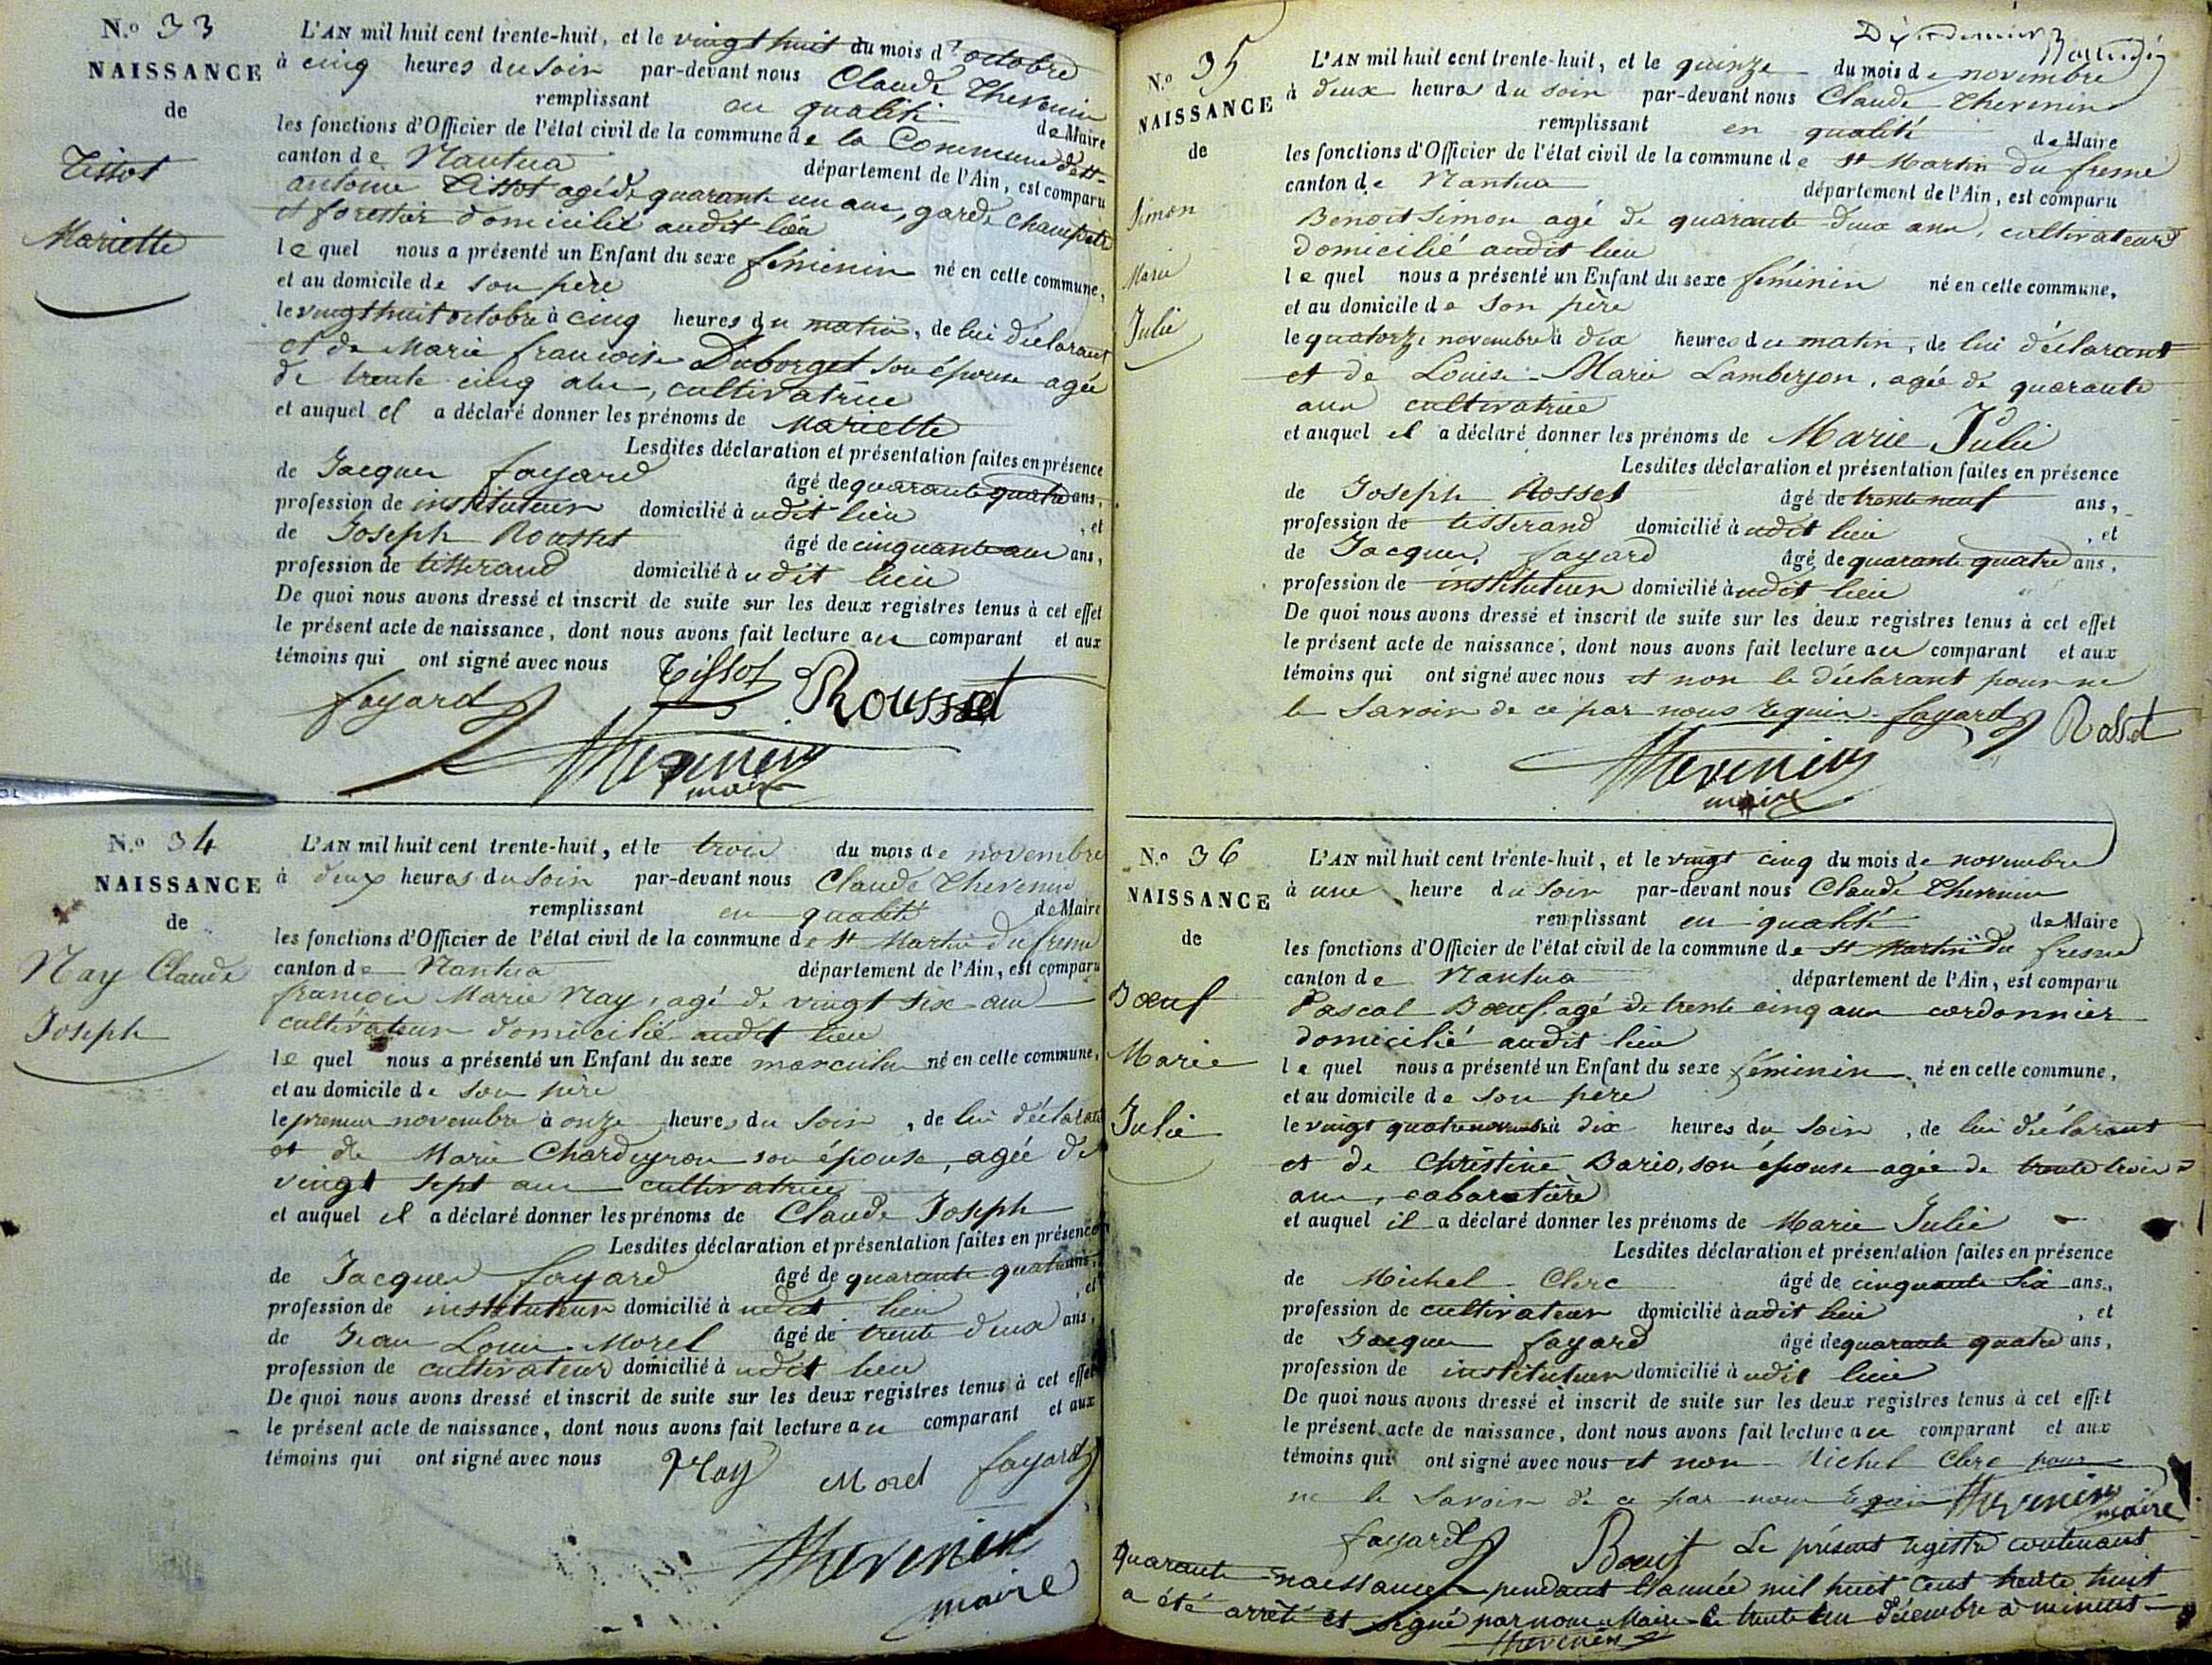 N.º 33
NAISSANCE
de
Tissot
Mariette
L'AN mil huit cent trente-huit, et le vingt huit du mois d'octobre
à cinq heures du soir par-devant nous Claude Thevenin
remplissant en qualité de Maire
les fonctions d'Officier de l'état civil de la commune de la Commune de st
canton de Nantua département de l'Ain, est comparu
antoine Tissot agé de quarante un ans, garde champetre
et forestier domicilié audit lieu
le quel nous a présenté un Enfant du sexe féminin né en cette commune,
et au domicile de son père
le vingt huit octobre à cinq heures du matin, de lui déclarant
et de Marie francoise Duborget son épouse agée
de trente cinq ans, cultivatrice
et auquel il a déclaré donner les prénoms de Mariette
Lesdites déclaration et présentation faites en présence
de Jacques fayard âgé de quarante quatre ans,
profession de instituteur domicilié à udit lieu , et
de Joseph Rousset âgé de cinquante ans ans,
profession de tisserand domicilié à udit lieu
De quoi nous avons dressé et inscrit de suite sur les deux registres tenus à cet effet
le présent acte de naissance, dont nous avons fait lecture au comparant et aux
témoins qui ont signé avec nous Tissot Rousset
fayard
Thevenin
maire
N.º 34
NAISSANCE
de
Nay Claude
Joseph
L'AN mil huit cent trente-huit, et le trois du mois de novembre
à deux heures du soir par-devant nous Claude Thevenin
remplissant en qualité de Maire
les fonctions d'Officier de l'état civil de la commune de st Martin du fresne
canton de Nantua département de l'Ain, est comparu
francois Marie Nay, agé de vingt six ans
cultivateur domicilié audit lieu
le quel nous a présenté un Enfant du sexe masculin né en cette commune,
et au domicile de son père
le premier novembre à onze heures du soir, de lui déclarant
et de Marie Chardeyron son épouse, agée de
vingt sept ans cultivatrice
et auquel il a déclaré donner les prénoms de Claude Joseph
Lesdites déclaration et présentation faites en présence
de Jacques fayard âgé de quarante quatre ans,
profession de instituteur domicilié à udit lieu , et
de Jean Louis Morel âgé de trente deux ans,
profession de cultivateur domicilié à udit lieu
De quoi nous avons dressé et inscrit de suite sur les deux registres tenus à cet effet
le présent acte de naissance, dont nous avons fait lecture au comparant et aux
témoins qui ont signé avec nous Nay Morel fayard
Thevenin
maire
N.º 35
NAISSANCE
de
Simon
Marie
Julie
L'AN mil huit cent trente-huit, et le quinze du mois de novembre
à deux heures du soir par-devant nous Claude Thevenin
remplissant en qualité de Maire
les fonctions d'Officier de l'état civil de la commune de st Martin du fresne
canton de Nantua département de l'Ain, est comparu
Benoit Simon agé de quarante deux ans, cultivateur
domicilié audit lieu
le quel nous a présenté un Enfant du sexe féminin né en cette commune,
et au domicile de son père
le quatorze novembre à dix heures du matin, de lui déclarant
et de Louise Marie Lamberjon, agée de quarante
ans cultivatrice
et auquel il a déclaré donner les prénoms de Marie Julie
Lesdites déclaration et présentation faites en présence
de Joseph Rosset âgé de trente neuf ans,
profession de tisserand domicilié à udit lieu , et
de Jacques fayard âgé de quarante quatre ans,
profession de instituteur domicilié à udit lieu
De quoi nous avons dressé et inscrit de suite sur les deux registres tenus à cet effet
le présent acte de naissance, dont nous avons fait lecture au comparant et aux
témoins qui ont signé avec nous et non le déclarant pour ne
le savoir de ce par nous requis. fayard Rosset
Thevenin
maire
N.º 36
NAISSANCE
de
Bœuf
Marie
Julie
L'AN mil huit cent trente-huit, et le vingt cinq du mois de novembre
à une heure du soir par-devant nous Claude Thevenin
remplissant en qualité de Maire
les fonctions d'Officier de l'état civil de la commune de st Martin du fresne
canton de Nantua département de l'Ain, est comparu
Pascal Bœuf agé de trente cinq ans cordonnier
domicilié audit lieu
le quel nous a présenté un Enfant du sexe féminin né en cette commune,
et au domicile de son père
le vingt quatre novembre à dix heures du soir, de lui déclarant
et de Christine Bario, son épouse agée de trente trois
ans, cabaretière
et auquel il a déclaré donner les prénoms de Marie Julie
Lesdites déclaration et présentation faites en présence
de Michel Clerc âgé de cinquante six ans,
profession de cultivateur domicilié à udit lieu , et
de Jacques fayard âgé de quarante quatre ans,
profession de instituteur domicilié à udit lieu
De quoi nous avons dressé et inscrit de suite sur les deux registres tenus à cet effet
le présent acte de naissance, dont nous avons fait lecture au comparant et aux
témoins qui ont signé avec nous et non Michel Clerc pour
ne le savoir de ce par nous requis Thevenin maire
fayard Bœuf Le présent registre contenant
quarante naissances pendant l'année mil huit cent trente huit
a été arrêté et signé par nous Maire le trente un décembre à minuit
Thevenin